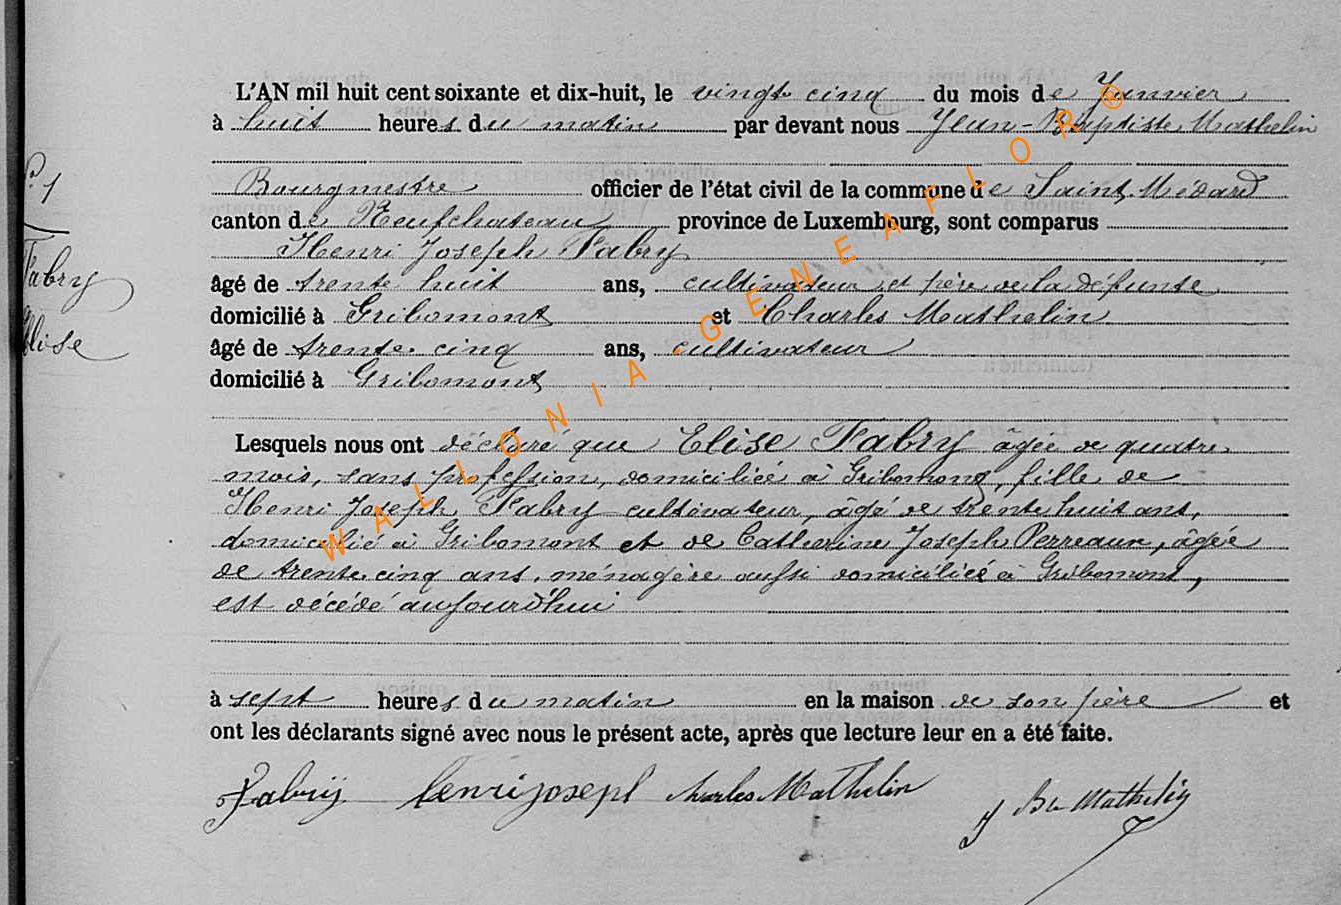 L'AN mil huit cent soixante et dix-huit, le vingt cinq du mois de Janvier
à huit heures du matin par devant nous Jean-Baptiste Mathelin
Bourgmestre officier de l'état civil de la commune de Saint Médard
canton de Neufchateau province de Luxembourg, sont comparus
Henri Joseph Fabry
âgé de trente huit ans, cultivateur et père de la défunte
domicilié à Gribomont et Charles Mathelin
âgé de trente cinq ans, cultivateur
domicilié à Gribomont
Lesquels nous ont déclaré que Elise Fabry âgée de quatre
mois, sans profession, domiciliée à Gribomong, fille de
Henri Joseph Fabry cultivateur, âgé de trente huit ans,
domicilié à Gribomont et de Catherine Joseph Perreaux, âgée
de trente cinq ans, ménagère aussi domiciliée à Gribomont,
est décédé aujourd'hui
à sept heures du matin en la maison de son père et
ont les déclarants signé avec nous le présent acte, après que lecture leur en a été faite.
Fabrÿ henri joseph Charles Mathelin J Bte Mathelin
1
Fabry
Elise
WALLONIA GENEAFLOR®